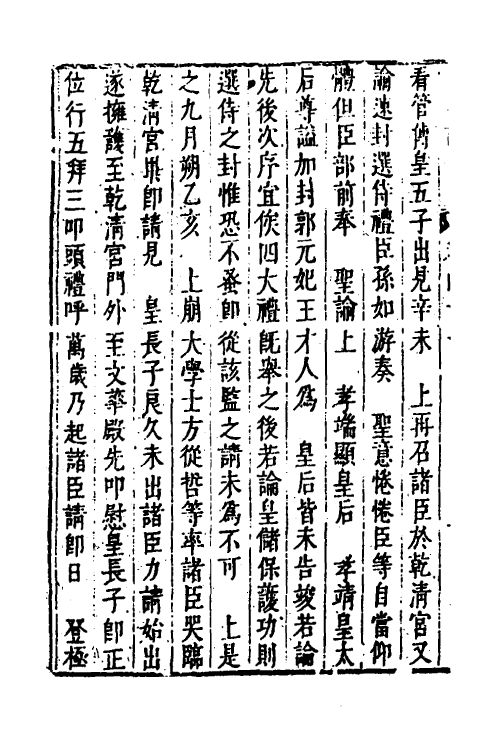 看管傳皇五子出見辛未　上再召諸臣於乾清宮又
諭速封選侍禮臣孫如游奏　聖意惓惓臣等自當仰
體但臣部前奉　聖諭上　孝端顯皇后　孝靖皇太
后尊諡加封郭元妃王才人爲　皇后皆未告竣若論
先後次序宜俟四大禮旣舉之後若論皇儲保護功則
選侍之封惟恐不蚤即從該監之請未爲不可　上是
之九月朔乙亥　上崩大學士方從哲等率諸臣哭臨
乾清宮畢卽請見　皇長子良久未出諸臣力請始出
遂擁護至乾清宮門外至文華殿先叩慰皇長子卽正
位行五拜三叩頭禮呼萬歲乃起諸臣請卽日　登極